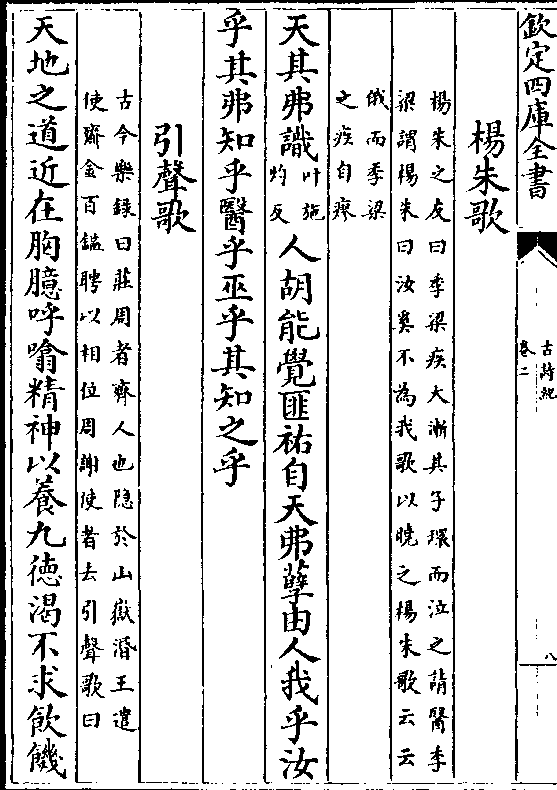 欽定四庫全書
古詩紀
卷二
八
楊朱歌
楊朱之友曰季梁疾大漸其子環而泣之請醫季
梁謂楊朱曰汝奚不為我歌以曉之楊朱歌云云
俄而季梁
之疾自瘳
天其弗識叶施灼反人胡能覺匪祐自天弗孽由人我乎汝
乎其弗知乎醫乎巫乎其知之乎
引聲歌
古今樂録曰莊周者齊人也隱於山嶽湣王遣
使齎金百鎰聘以相位周謝使者去引聲歌曰
天地之道近在胸臆呼噏精神以養九徳渴不求飲饑